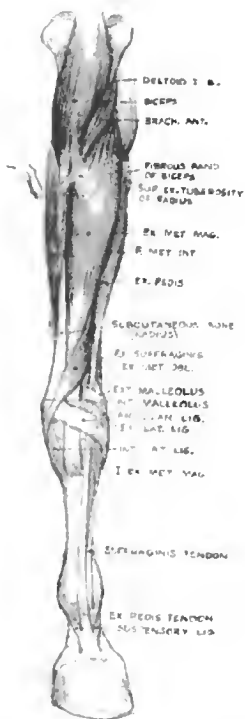 DELTOID
BICEPS
BRACH. ANT.
FIBROUS BAND
OF BICEPS
SUP. EX. TUBEROSITY
OF RADIUS
EX MET MAG.
MET INT
EX. PEDIS
SUBCUTANEOUS BONE
(RADIUS)
EX SUFFRAGINIS
EX MET OBL.
EXT MALLEOLUS
INT MALLEOLUS
LIG.
EX LAT. LIG
INT LAT LIG.
EX MET MAG
SUFFRAGINIS TENDON
EX PEDIS TENDON
SUSPENSORY LIG